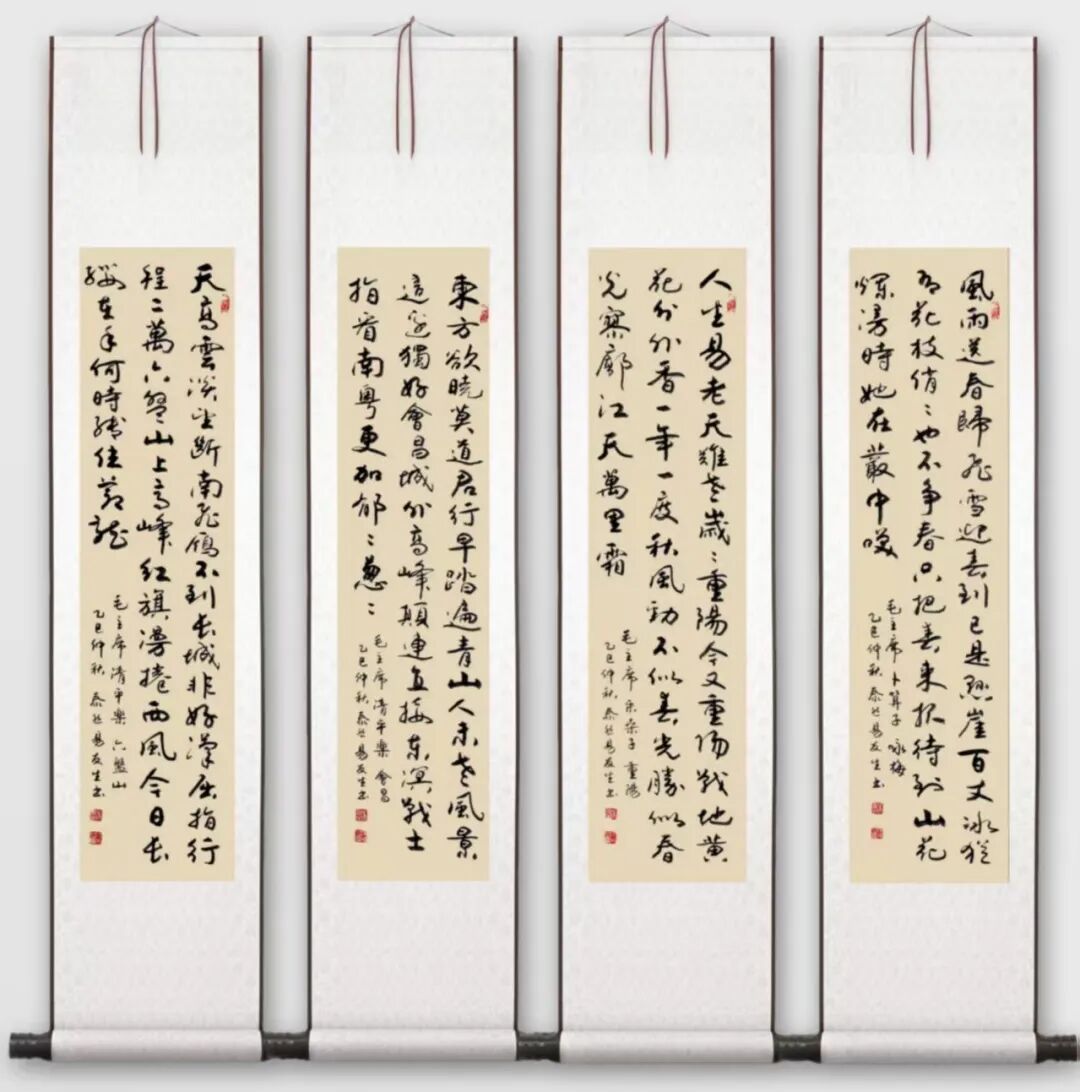 風雨送春歸飛雪迎春到已是懸崖百丈冰猶
有花枝俏〻也不争春只把春來报待到山花
爛漫時她在叢中咲
毛主席卜算子 咏梅
乙巳仲秋 泰 易友生书
人生易老天難老歲〻重陽今又重陽戰地黄
花分外香一年一度秋風勁不似春光勝似春
光寥廓江天萬里霜
毛主席采桑子 重陽
乙巳仲秋 泰 易友生书
東方欲曉莫道君行早踏遍青山人未老風景
這邊獨好會昌城外高峰顛連直接東溟戰士
指看南粤更加郁〻葱〻
毛主席清平樂 會昌
乙巳仲秋 泰 易友生书
天高雲淡望斷南飛鴈不到長城非好漢屈指行
程二萬六盤山上高峰紅旗漫捲西風今日長
纓在手何時縛住蒼龍
毛主席清平樂 六盤山
乙巳仲秋 泰 易友生书